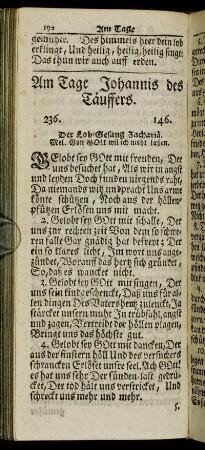 192 Am Tage
gemüther. Des himmels heer dein lob
erklingt, Und heilig, heilig, heilig singt
Das thun wir auch auff erden.
Am Tage Johannis des
Täuffers.
236. 146.
Der Lob-Gesang Zachariä.
Mel. Von GOtt wil ich nicht lassen.
GElobt sey GOtt mit freuden, Der
uns besuchet hat, Als wir in angst
und leyden Doch funden nirgends raht,
Da niemands witz und pracht Uns arme
könte schützen, Noch aus der höllen-
pfützen Erlösen uns mit macht.
2. Gelobt sey GOtt mit schalle, Der
uns zur rechten zeit Von dem so schwe-
ren falle Gar gnädig hat befreyt; Der
ein so klares licht, Im wort uns ange-
zündet, Worauff das hertz sich gründet
So, daß es wancket nicht.
3. Gelobt sey GOtt mit singen, Der
uns sein kind geschenckt, Daß uns für al-
len dingen Des Vaters hertz zulenckt, Ja
stärcket unsern muht In trübsahl, angst
und zagen, Vertreibt der höllen plagen,
Bringt uns das höchste gut.
4. Gelobt sey GOtt mit dancken, Der
aus der finstern höll Und des versuchers
schrancken Erlöset unsre seel. Ach GOtt!
es hat uns sehr Der sünden-last gedrü-
cket, Der tod hält uns verstricket, Und
schreckt uns mehr und mehr.
5.